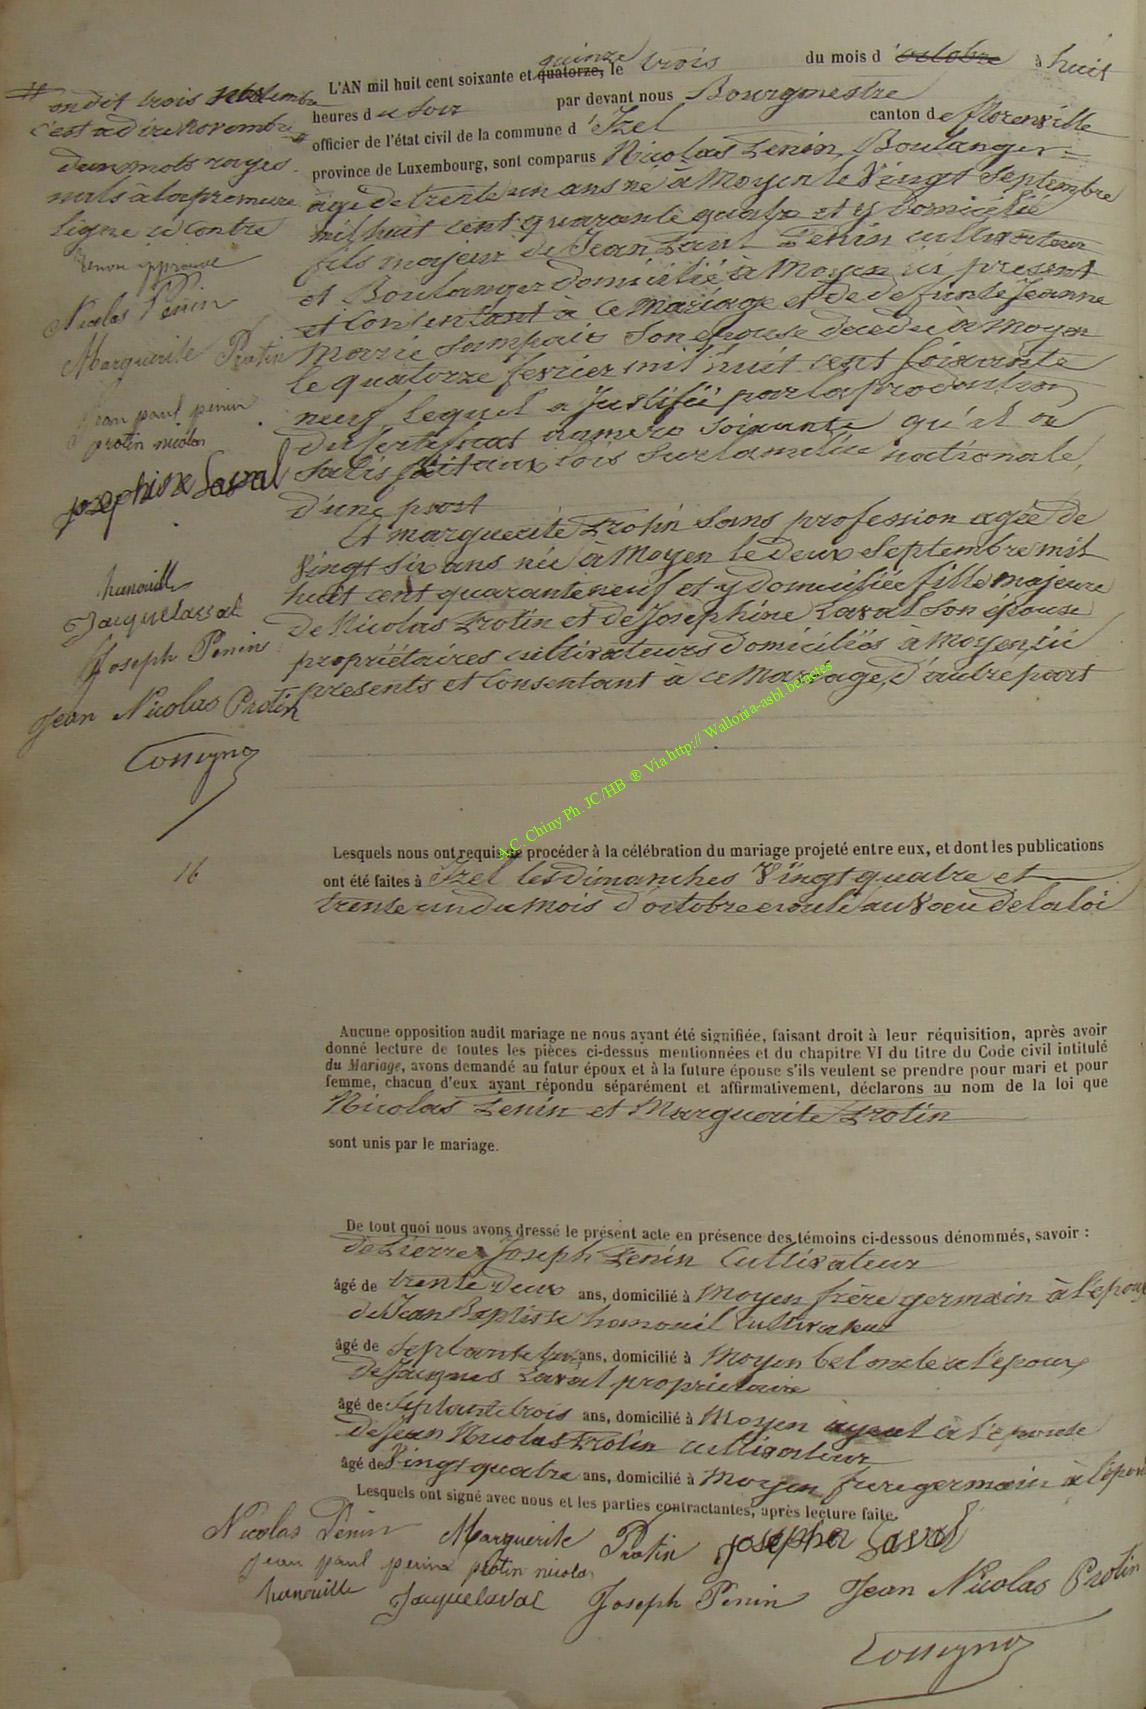 quinze
L'AN mil huit cent soixante et quatorze, le trois du mois d'octobre à huit
heures du soir par devant nous Bourgmestre
officier de l'état civil de la commune d'Izel canton de florenville
province de Luxembourg, sont comparus Nicolas Penin, Boulanger
âgé de trente un ans né à Moyen le Vingt Septembre
mil huit cent quarante quatre et y domicilié
fils majeur de Jean Paul Penin cultivateur
et Boulanger domicilié à Moyen ici present
et Consentant à ce Mariage et de defunte Jeanne
Marie Son epouse decedée à Moyen
le quatorze fevrier mil huit cent soixante
neuf lequel a Justifié par la production
du Certificat numero soixante qu'il a
satisfait aux lois sur la milice nationale,
d'une part
Et marguerite Protin Sans profession agée de
Vingt Six ans née à Moyen le deux Septembre mil
huit cent quarante neuf et y domiciliée fille majeure
de Nicolas Protin et de Josephine Laval son épouse
propriétaires cultivateurs domiciliés à Moyen, ici
presents et Consentant à ce Mariage, d'autre part
on dit trois
c'est a dire Novembre
deux mots rayés
nuls à la premiere
ligne ci contre
approuvé
Nicolas Penin
Marguerite Protin
Jean paul penin
protin nicolas
josephine Laval
hanouille
Jacque laval
Joseph Penin
Jean Nicolas Protin
16
A.C. Chiny Ph. JC/HB ® Via http://Wallonia-asbl.be/actes
Lesquels nous ont requis de procéder à la célébration du mariage projeté entre eux, et dont les publications
ont été faites à Izel les dimanches Vingt quatre et
trente un du mois d'octobre ecoulé au Vœu de la loi
Aucune opposition audit mariage ne nous ayant été signifiée, faisant droit à leur réquisition, après avoir
donné lecture de toutes les pièces ci-dessus mentionnées et du chapitre VI du titre du Code civil intitulé
du Mariage, avons demandé au futur époux et à la future épouse s'ils veulent se prendre pour mari et pour
femme, chacun d'eux ayant répondu séparément et affirmativement, déclarons au nom de la loi que
Nicolas Penin et Marguerite Protin
sont unis par le mariage.
De tout quoi nous avons dressé le présent acte en présence des témoins ci-dessous dénommés, savoir :
de Pierre Joseph Penin Cultivateur
âgé de trente Deux ans, domicilié à Moyen frère germain à l'epoux
de Jean Baptiste hanouil Cultivateur
âgé de Septante ans, domicilié à Moyen bel oncle a l'époux
de Jacques Laval proprietaire
âgé de Septante trois ans, domicilié à Moyen ayeul à l'epouse
de Jean Nicolas Protin cultivateur
âgé de Vingt quatre ans, domicilié à Moyen frere germain à l'épouse
Lesquels ont signé avec nous et les parties contractantes, après lecture faite.
Nicolas Penin Marguerite Protin Laval
jean paul penin protin nicolas
hanouille Jacque laval Joseph Penin Jean Nicolas Protin